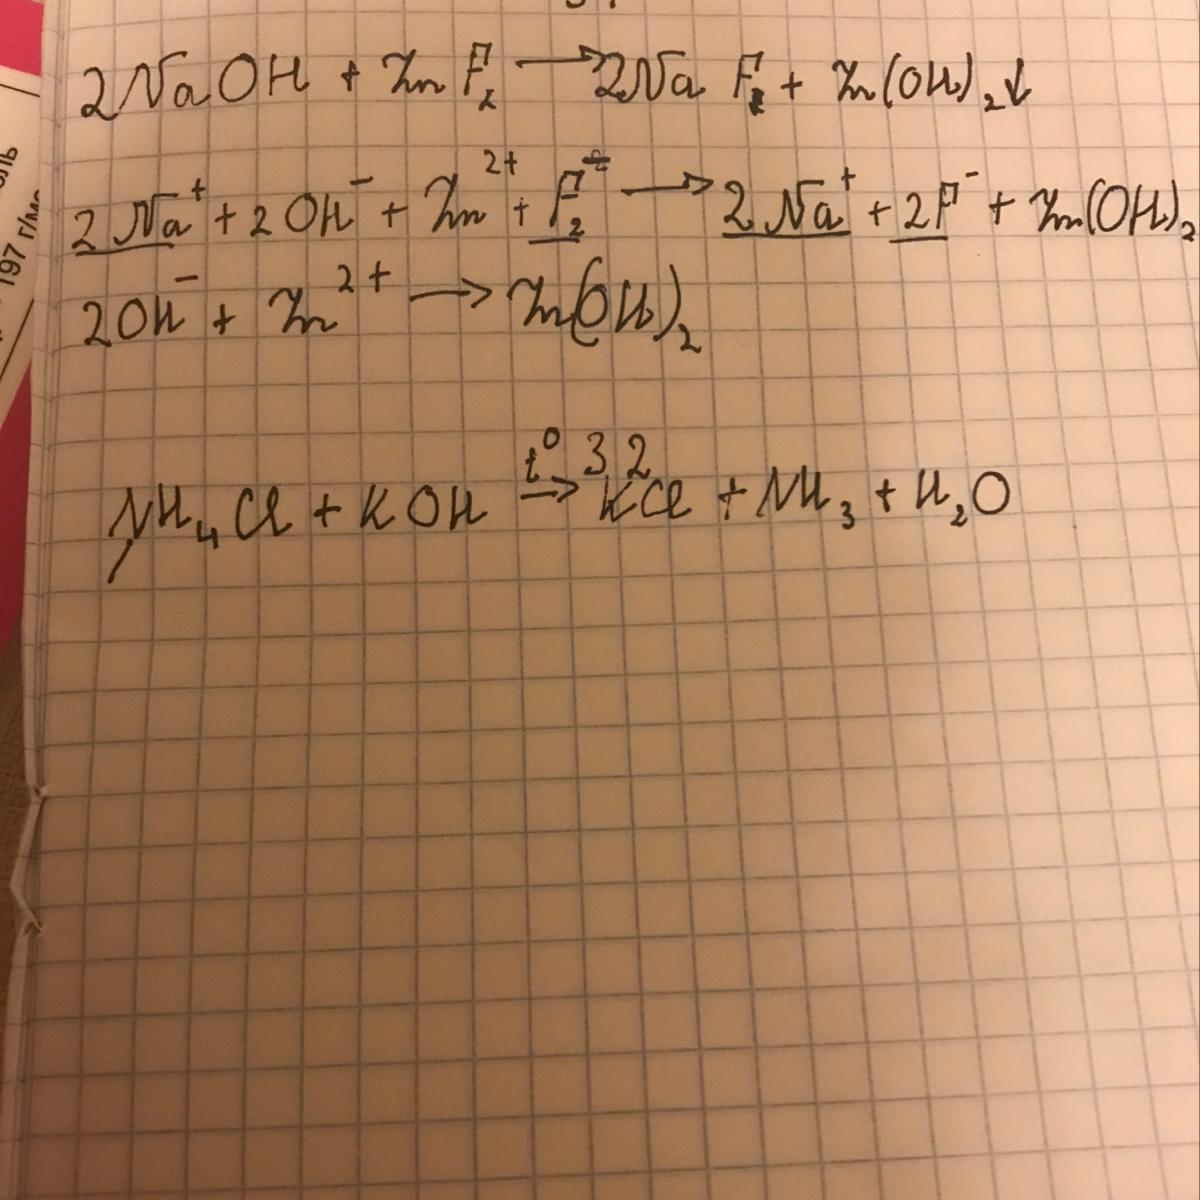 2NaOH + ZnF₂ → 2NaF + Zn(OH)₂↓
2Na⁺ + 2OH⁻ + Zn²⁺ + F₂ → 2Na⁺ + 2F⁻ + Zn(OH)₂
2OH⁻ + Zn²⁺ → Zn(OH)₂
t⁰ 32
NH₄Cl + KOH → KCl + NH₃ + H₂O
197 г/мо